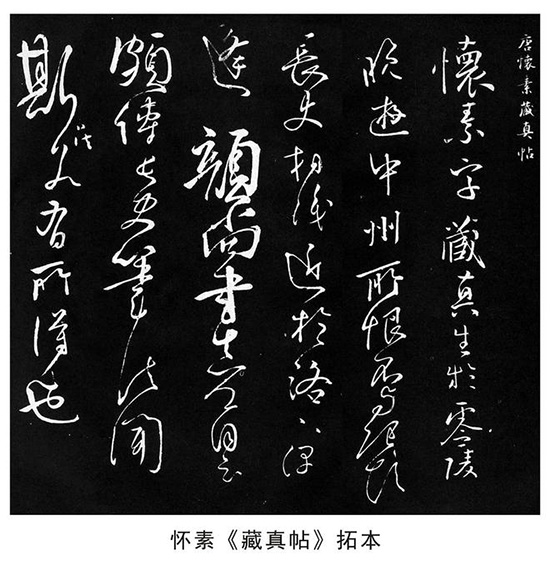 唐懷素藏真帖
懷素字藏真生於零陵
晚遊中州所恨不與張顛
長史相識近於洛下偶
逢顏尚書真卿自云
頗傳長史筆法聞
斯八法若有所得也
怀素《藏真帖》拓本